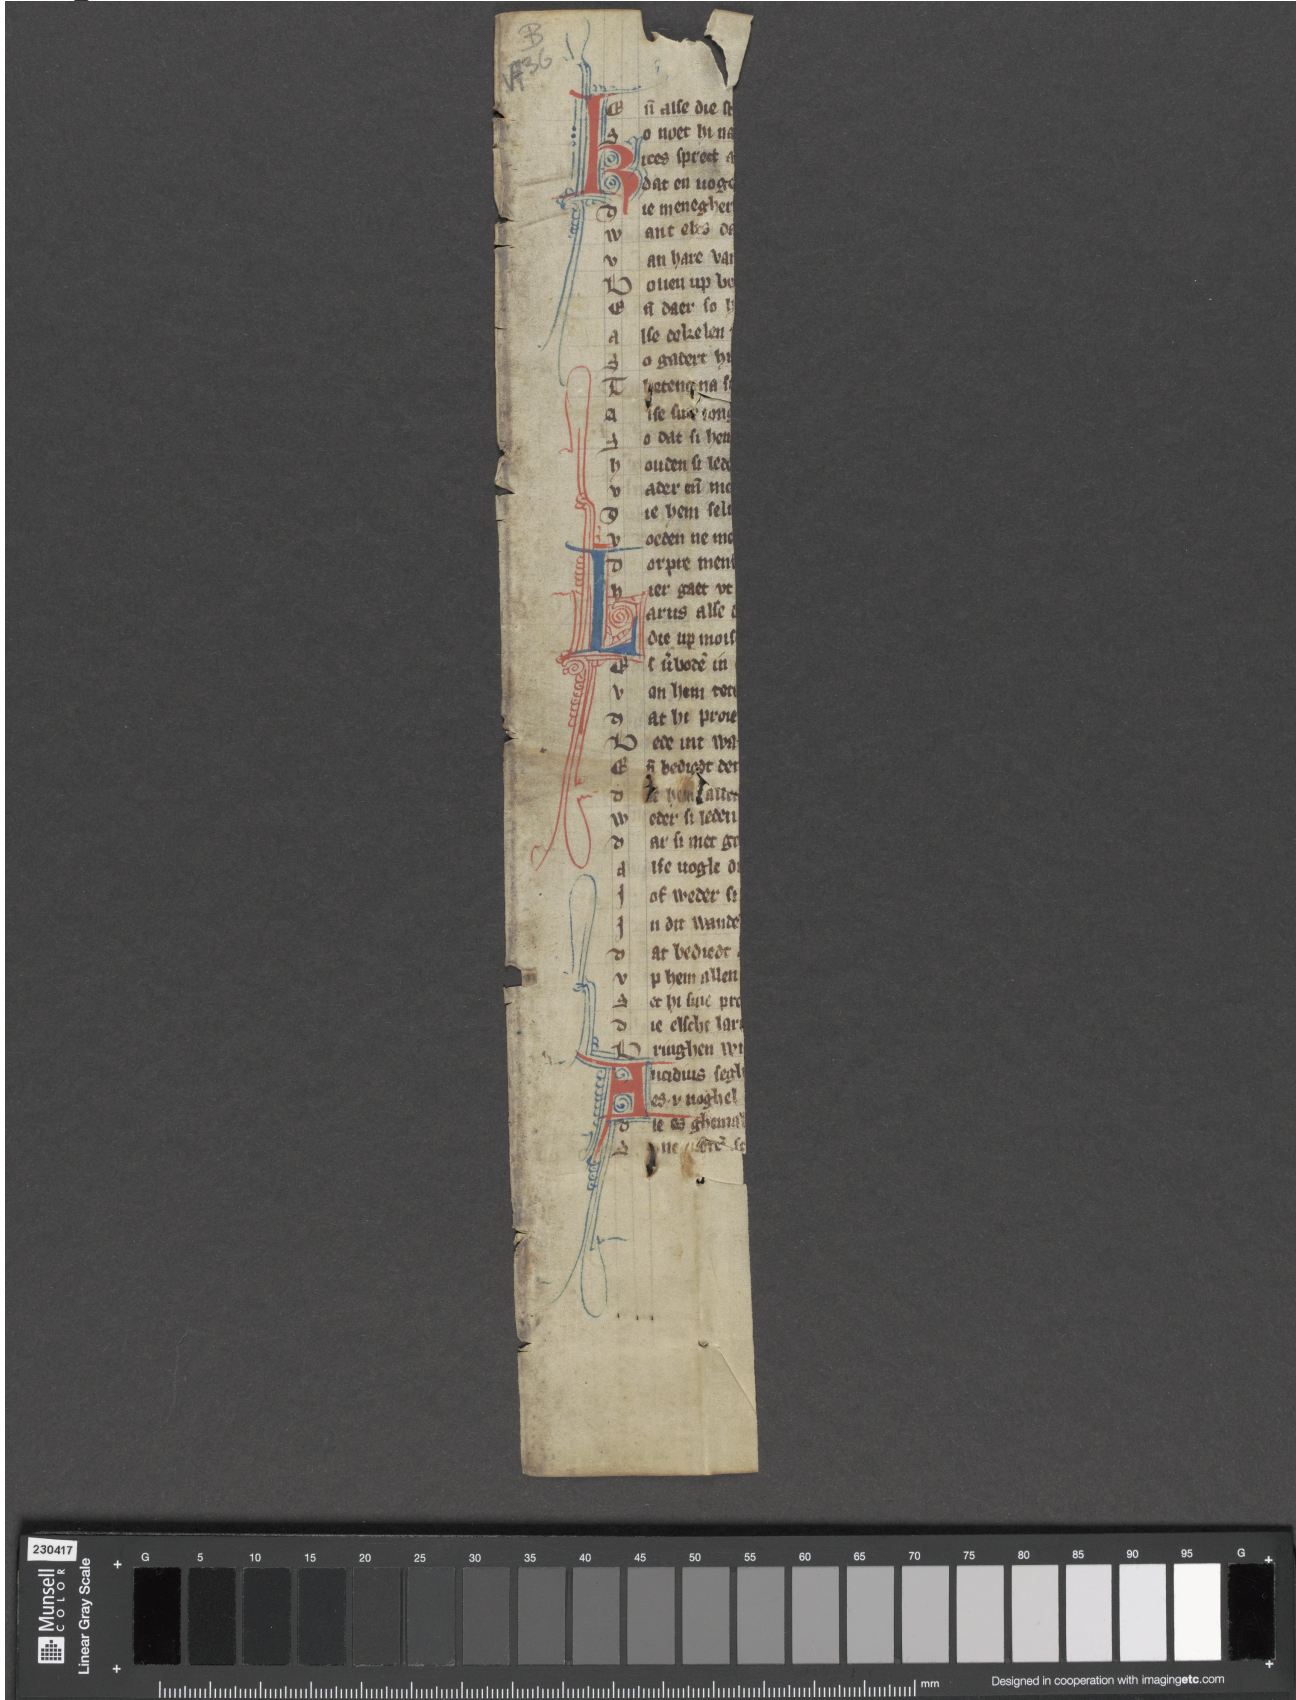 B
VA 36
E ñ alse die st
S o voet hi na
K ices sprect a
dat en voge
D ie menegher
W ant elcs da
V an hare var
B ouen up bo
E ñ daer so h
A lse dekelen
S o gadert hi
A lse sine iong
S o dat si hem
H ouden si lede
V ader eñ mo
D ie hem selu
V oeden ne mo
D orpre mens
H ier gaet vt
L arus alse d
die up mois
V an hem tere
D at hi proie
B ede int wa
E ñ bediedt der
D hem allen
W eder si leden
D ar si met gr
A lse vogle di
I of weder si
I n dit wande
D at bediedt
V p hem allen
S et hi sine pro
D ie elscht lari
B ringhen wi
L ucidius segh
es .i. voghel
D ie es ghemaect
230417
Munsell
COLOR
Linear Gray Scale
G 5 10 15 20 25 30 35 40 45 50 55 60 65 70 75 80 85 90 95 G
mm
Designed in cooperation with imagingetc.com